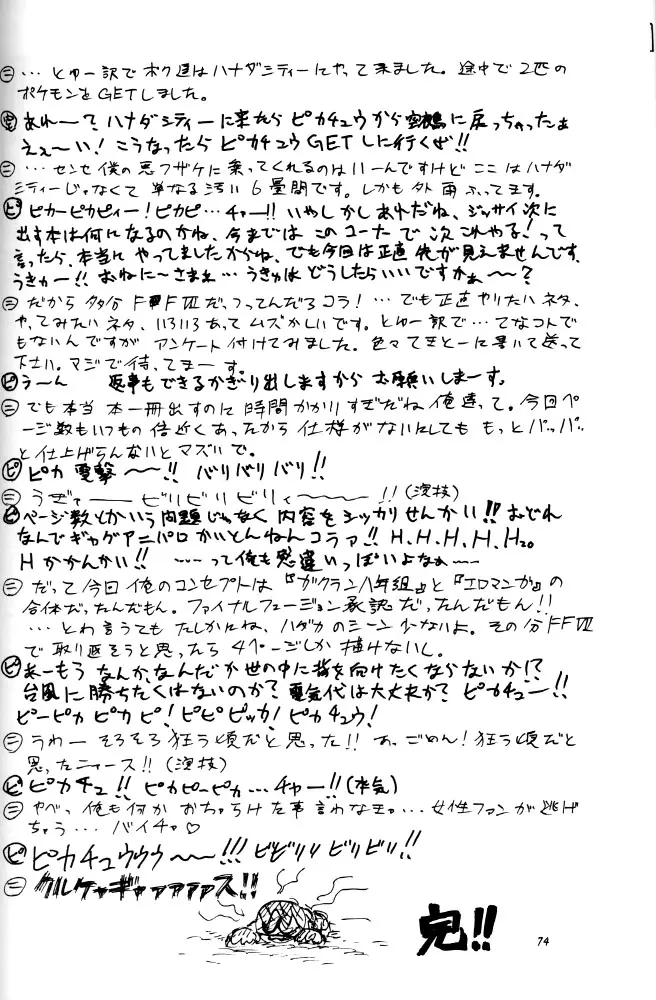 ㊁…とゆー訳でボク達はハナダシティーにやって来ました。途中で2匹の
ポケモンをGETしました。
あれ〜?ハナダシティーに来たらピカチュウから空鶴に戻っちゃったぁ
えぇ〜い!こうなったらピカチュウGETしに行くぜ!!
㊁…センセ僕の悪フザケに乗ってくれるのはいーんですけどここはハナダ
シティーじゃなくて単なる汚い6畳間です。しかも外雨ふってます。
ピ ピカーピカピィー!ピカピ…チャー!!いやしかしあれだね、ジッサイ次に
出す本は何になるのかね、今までは このコーナで 次これやる!って
言ったら、本当に やってましたからね、でも今回は正直 先が見えませんです。
うきゃー!!おねに〜さまぁ…うきゅはどうしたらいいですかぁ〜〜?
㊁だから多分FFⅦだっつってんだろコラ!…でも正直やりたいネタ、
やってみたいネタ、いろいろあってムズかしいです。とゆー訳で…てなコトで
もないんですが アンケート付けてみました。色々てきとーに書いて送って
下さい。マジで待ってまーす。
ピ う〜ん 返事もできるかぎり出しますからお願いしまーす。
㊁でも本当 本一冊出すのに時間かかりすぎだね俺達って。今回ペ
ージ数もいつもの倍近くあったから仕様がないにしても もっとパッパッ
と仕上げらんないとマズいで。
ピ ピカ 電撃〜〜!!バリバリバリ!!
㊁うぎゃーービリビリビリィ〜〜〜!!(演技)
ピ ページ数とかいう問題じゃなく内容をシッカリせんかい!!おどれ
なんでギャグアニパロかいとんねんコラァ!!H.H.H.H.H₂₀
Hかかんかい!! 〜〜…って俺も思違いっぽいよなぁ〜
㊁だって今回俺のコンセプトは『ガクラン八年組』と『エロマンガ』の
合体だったんだもん。ファイナルフュージョン承認だったんだもん!!
…とわ言うてもたしかにね、ハダカのシーン少ないよ。その分FFⅦ
で取り返そうと思ったら4ページしか描けないし。
ピ あーもう なんか、なんだか世の中に背を向けたくならないか!?
台風に勝ちたくはないのか?電気代は大丈夫か?ピカチュー!!
ピーピカピカピ!ピピピッカ!ピカチュウ!
㊁うわー そろそろ狂う頃だと思った!!あっごめん!狂う頃だと
思ったニャース!!(演技)
ピ ピカチュ!!ピカピーピカ…チャー!!(本気)
㊁やべっ俺も何か おちゃらけた事言わなきゃ…女性ファンが逃げ
ちゃう…バイチャ♡
ピ ピカチュウウウ〜〜!!!ビビリリビリビリ!!
㊁クルケャギャァァァァス!!
完!!
74